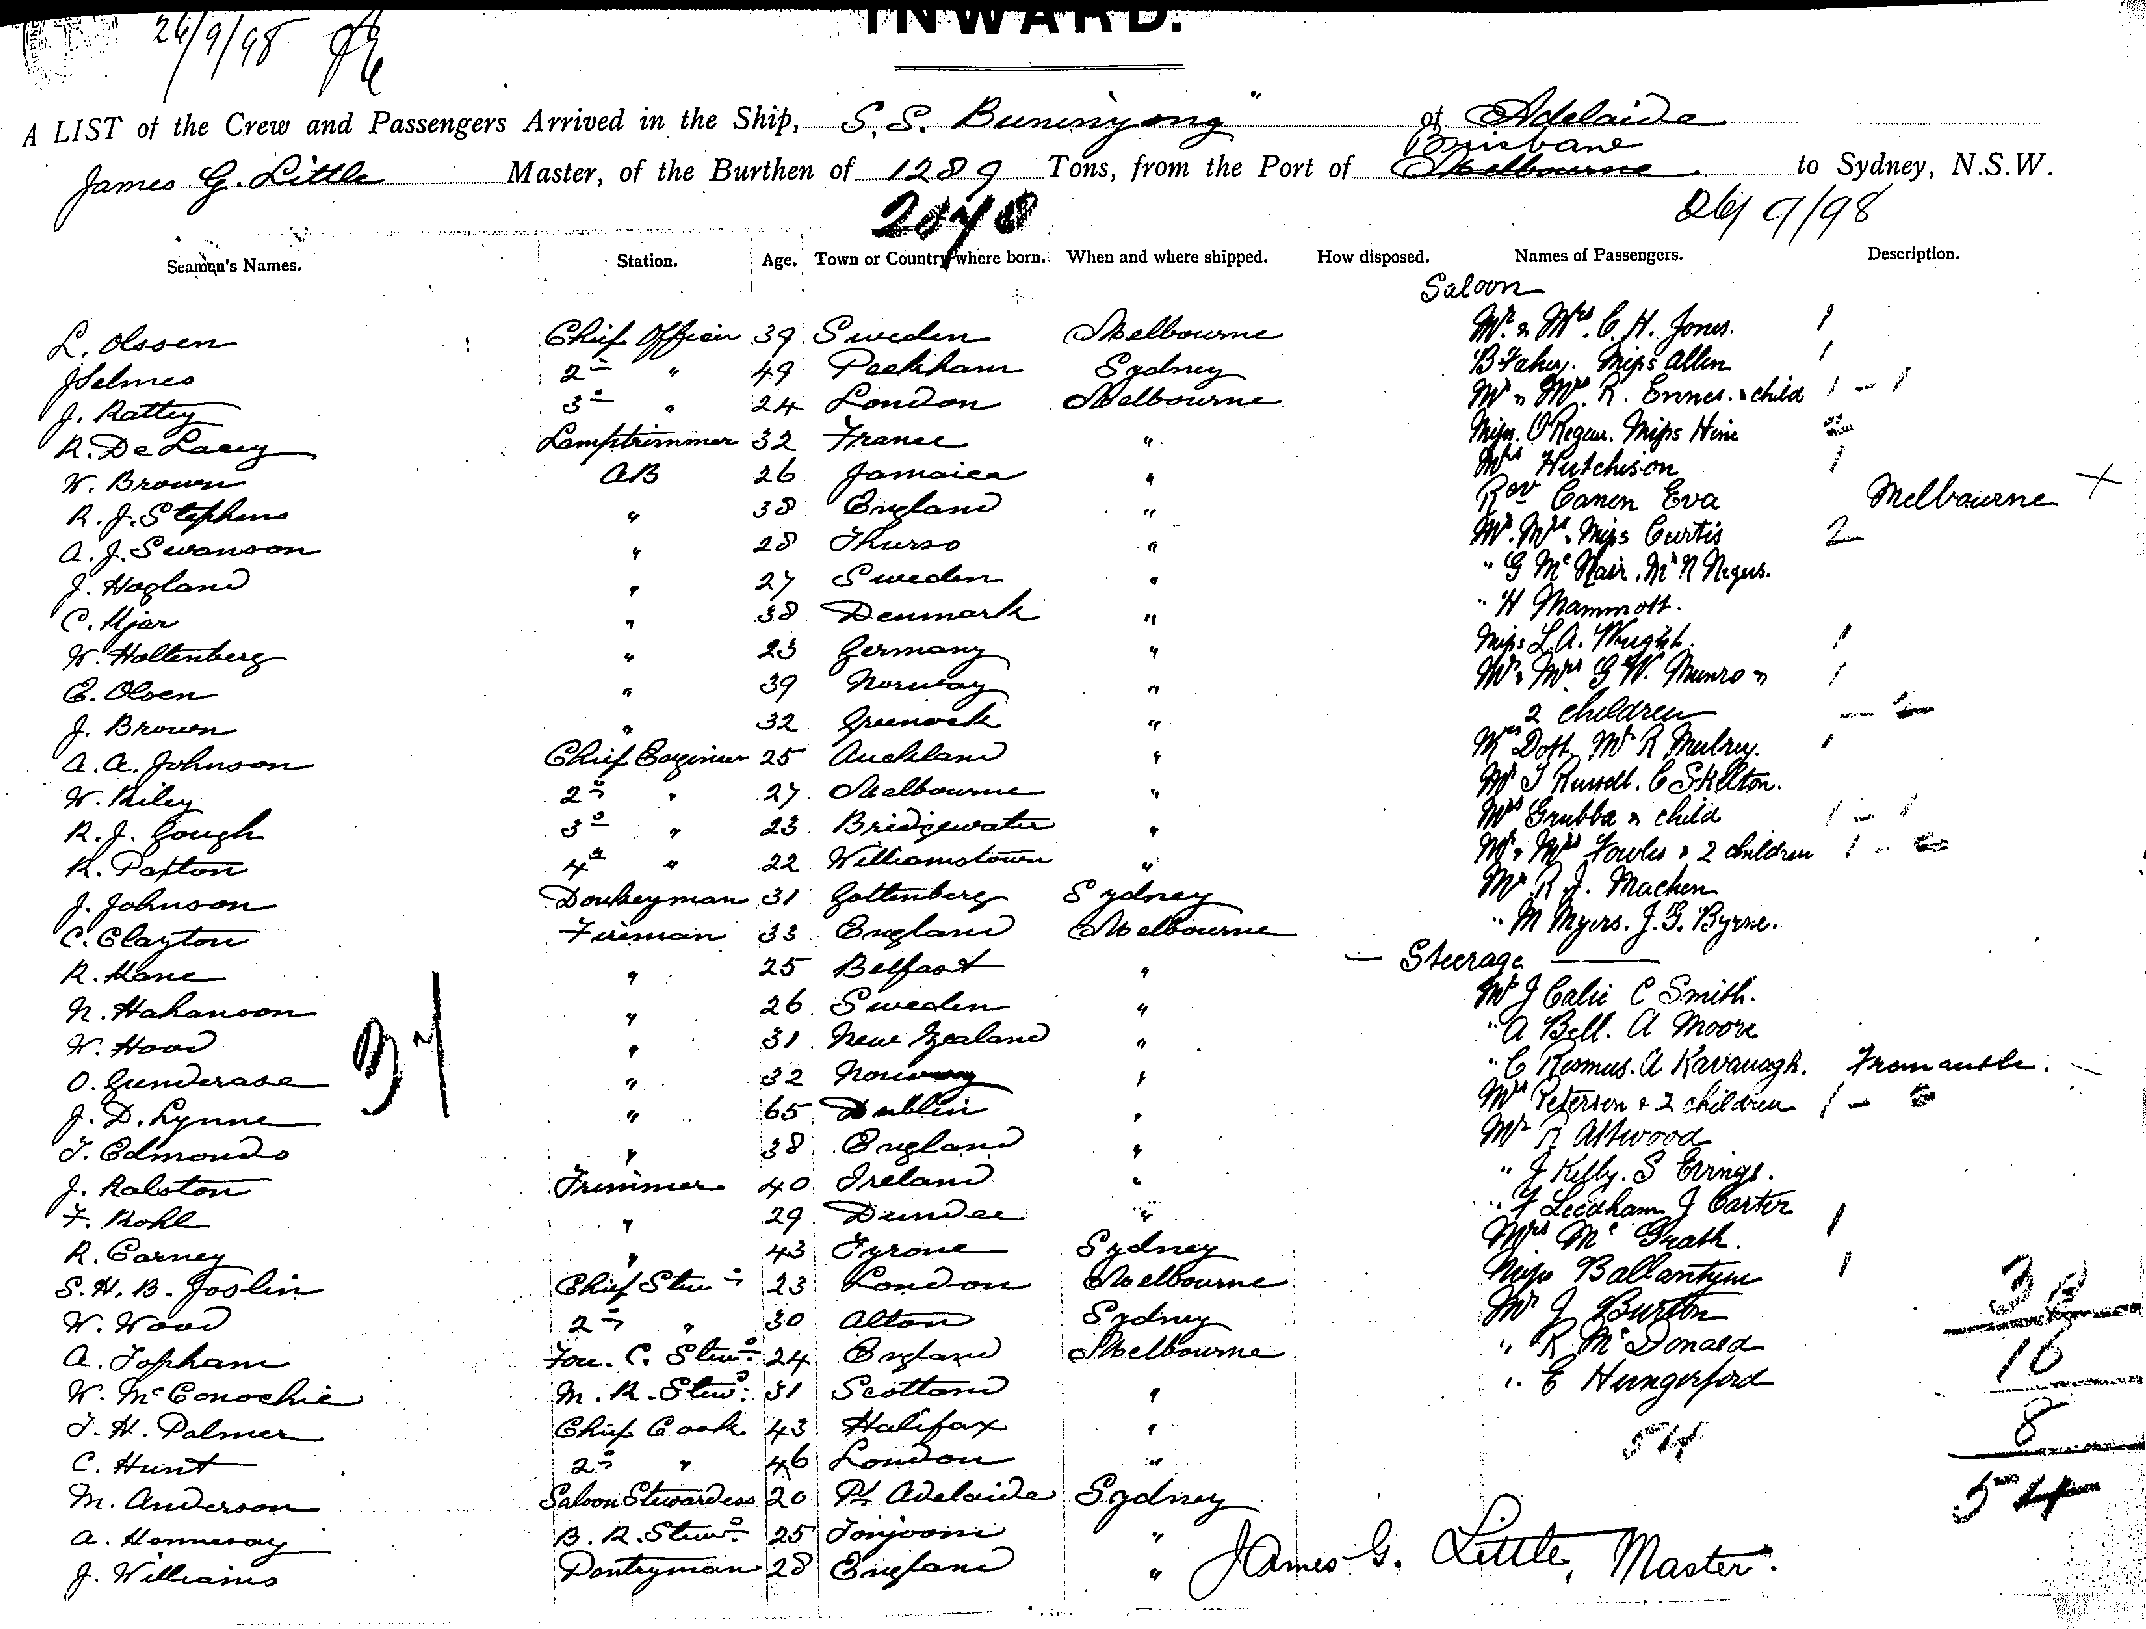 INWARD.
26/9/98
A LIST of the Crew and Passengers Arrived in the Ship, S.S. Buninyong" of Adelaide
Brisbane
James G. Little Master, of the Burthen of 1289 Tons, from the Port of Melbourne to Sydney, N.S.W.
2048
26/9/98
Seaman's Names. Station. Age. Town or Country where born. When and where shipped. How disposed. Names of Passengers. Description.
Saloon
L. Olssen Chief Officer 39 Sweden Melbourne Mr & Mrs C. H. Jones. 1
J Selmes 2nd " 49 Peckham Sydney B Fahey. Miss Allen 1
J. Rattey 3rd " 24 London Melbourne Mr & Mrs R. Ennes. & child 1 - 1
R. De Lacey Lamptrimmer 32 France " Miss O'Regan. Miss Hine
W. Brown AB 26 Jamaica " Mrs Hutchison 1
R. J. Stephens " 38 England " Rev Canon Eva Melbourne X
A. J. Swanson " 28 Thurso " Mr. Mrs & Miss Curtis 2
J. Hogland " 27 Sweden " " G McNair. Mr N Negus.
C. Mjar " 38 Denmark " " H Mammott.
W. Holtenberg " 23 Germany " Miss L. A. Wright. 1
C. Olsen " 39 Norway " Mr & Mrs G W. Munro & 1
J. Brown " 32 Greenock " 2 children
A. A. Johnson Chief Engineer 25 Auckland " Doft Mr R Mulrey. 1
W. Riley 2nd " 27 Melbourne " Mr T Russell. C Skelton.
R. J. Gough 3rd " 23 Bridgewater " Mrs Grubba & child 1 - 1
R. Paxton 4th " 22 Williamstown " Mr & Mrs Fowles & 2 children 1 -
J. Johnson Donkeyman 31 Gottenberg Sydney Mr R. J. Machen
C. Clayton Fireman 33 England Melbourne " M Myers. J. G. Byrne.
R. Kane " 25 Belfast " — Steerage —
N. Hakanson " 26 Sweden " Mr J Calic C Smith.
W. Hood " 31 New Zealand " " A Bell. A Moore
O. Gunderase " 32 Norway " " C Rasmus. A Kavanagh. Fremantle.
J. D. Lynne " 65 Dublin " Mrs Peterson & 2 children 1 -
37
T. Edmonds " 38 England " Mr R Attwood
J. Ralston Trimmer 40 Ireland " " J Kelly. S Errings.
F. Kohl " 29 Dundee " " F Leedham J Carter
R. Carney " 43 Tyrone Sydney Mrs McGrath. 1
S. H. B. Joslin Chief Stewd 23 London Melbourne Miss Ballantyne 1
W. Wood 2nd " 30 Alton Sydney Mr J Burton
A. Topham Fore. C. Stewd 24 England Melbourne " R McDonald
W. McConochie M. R. Stewd. 31 Scotland " " E Hungerford
T. H. Palmer Chief Cook 43 Halifax "
C. Hunt 2nd " 46 London " 54
M. Anderson Saloon Stewardess 20 Pt Adelaide Sydney
A. Hennessy B. R. Stewd 25 "
J. Williams Pantryman 28 England "
16
8
54
James G. Little, Master.